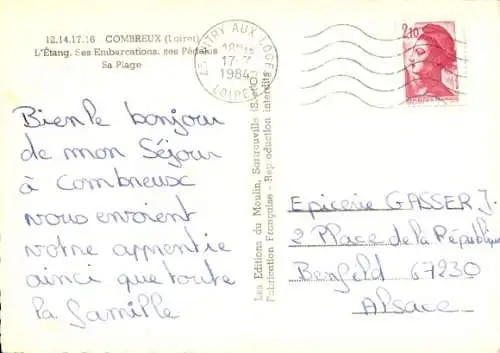 12.14.17.16 COMBREUX (Loiret)
L'Étang. Ses Embarcations. ses Pédalos
Sa Plage
VITRY AUX LOGES
18H
17-7
1984
LOIRET
2,10
Bien le bonjour
de mon Séjour
à Combreuse
vous envoient
votre apprentie
ainci que toute
la famille
Les Editions du Moulin, Sartrouville
Fabrication Française - Reproduction interdite
Epicerie GASSER J.
2 Place de la République
Benfeld 67230
Alsace